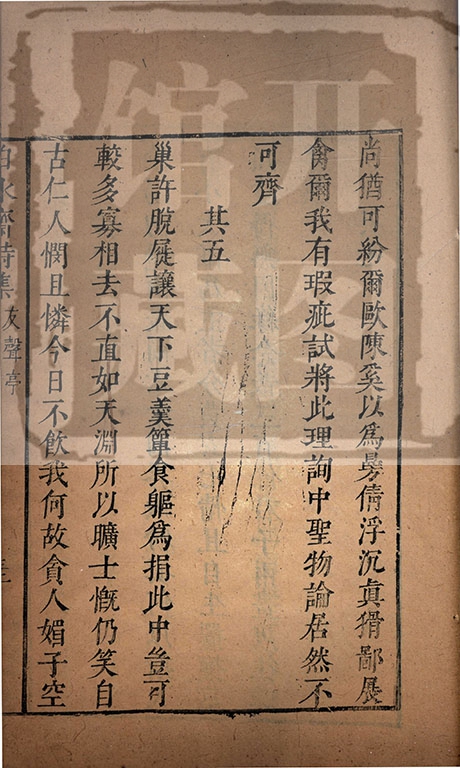 尚猶可紛爾歐陳奚以爲曼倩浮沉眞猾鄙展
禽爾我有瑕疵試將此理詢中聖物論居然不
可齊
其五
巢許脫屣讓天下豆羹簞食軀爲捐此中豈可
較多寡相去不直如天淵所以曠士慨仍笑自
古仁人憫且憐今日不飲我何故貪人媚子空
白水齋詩集 友聲亭